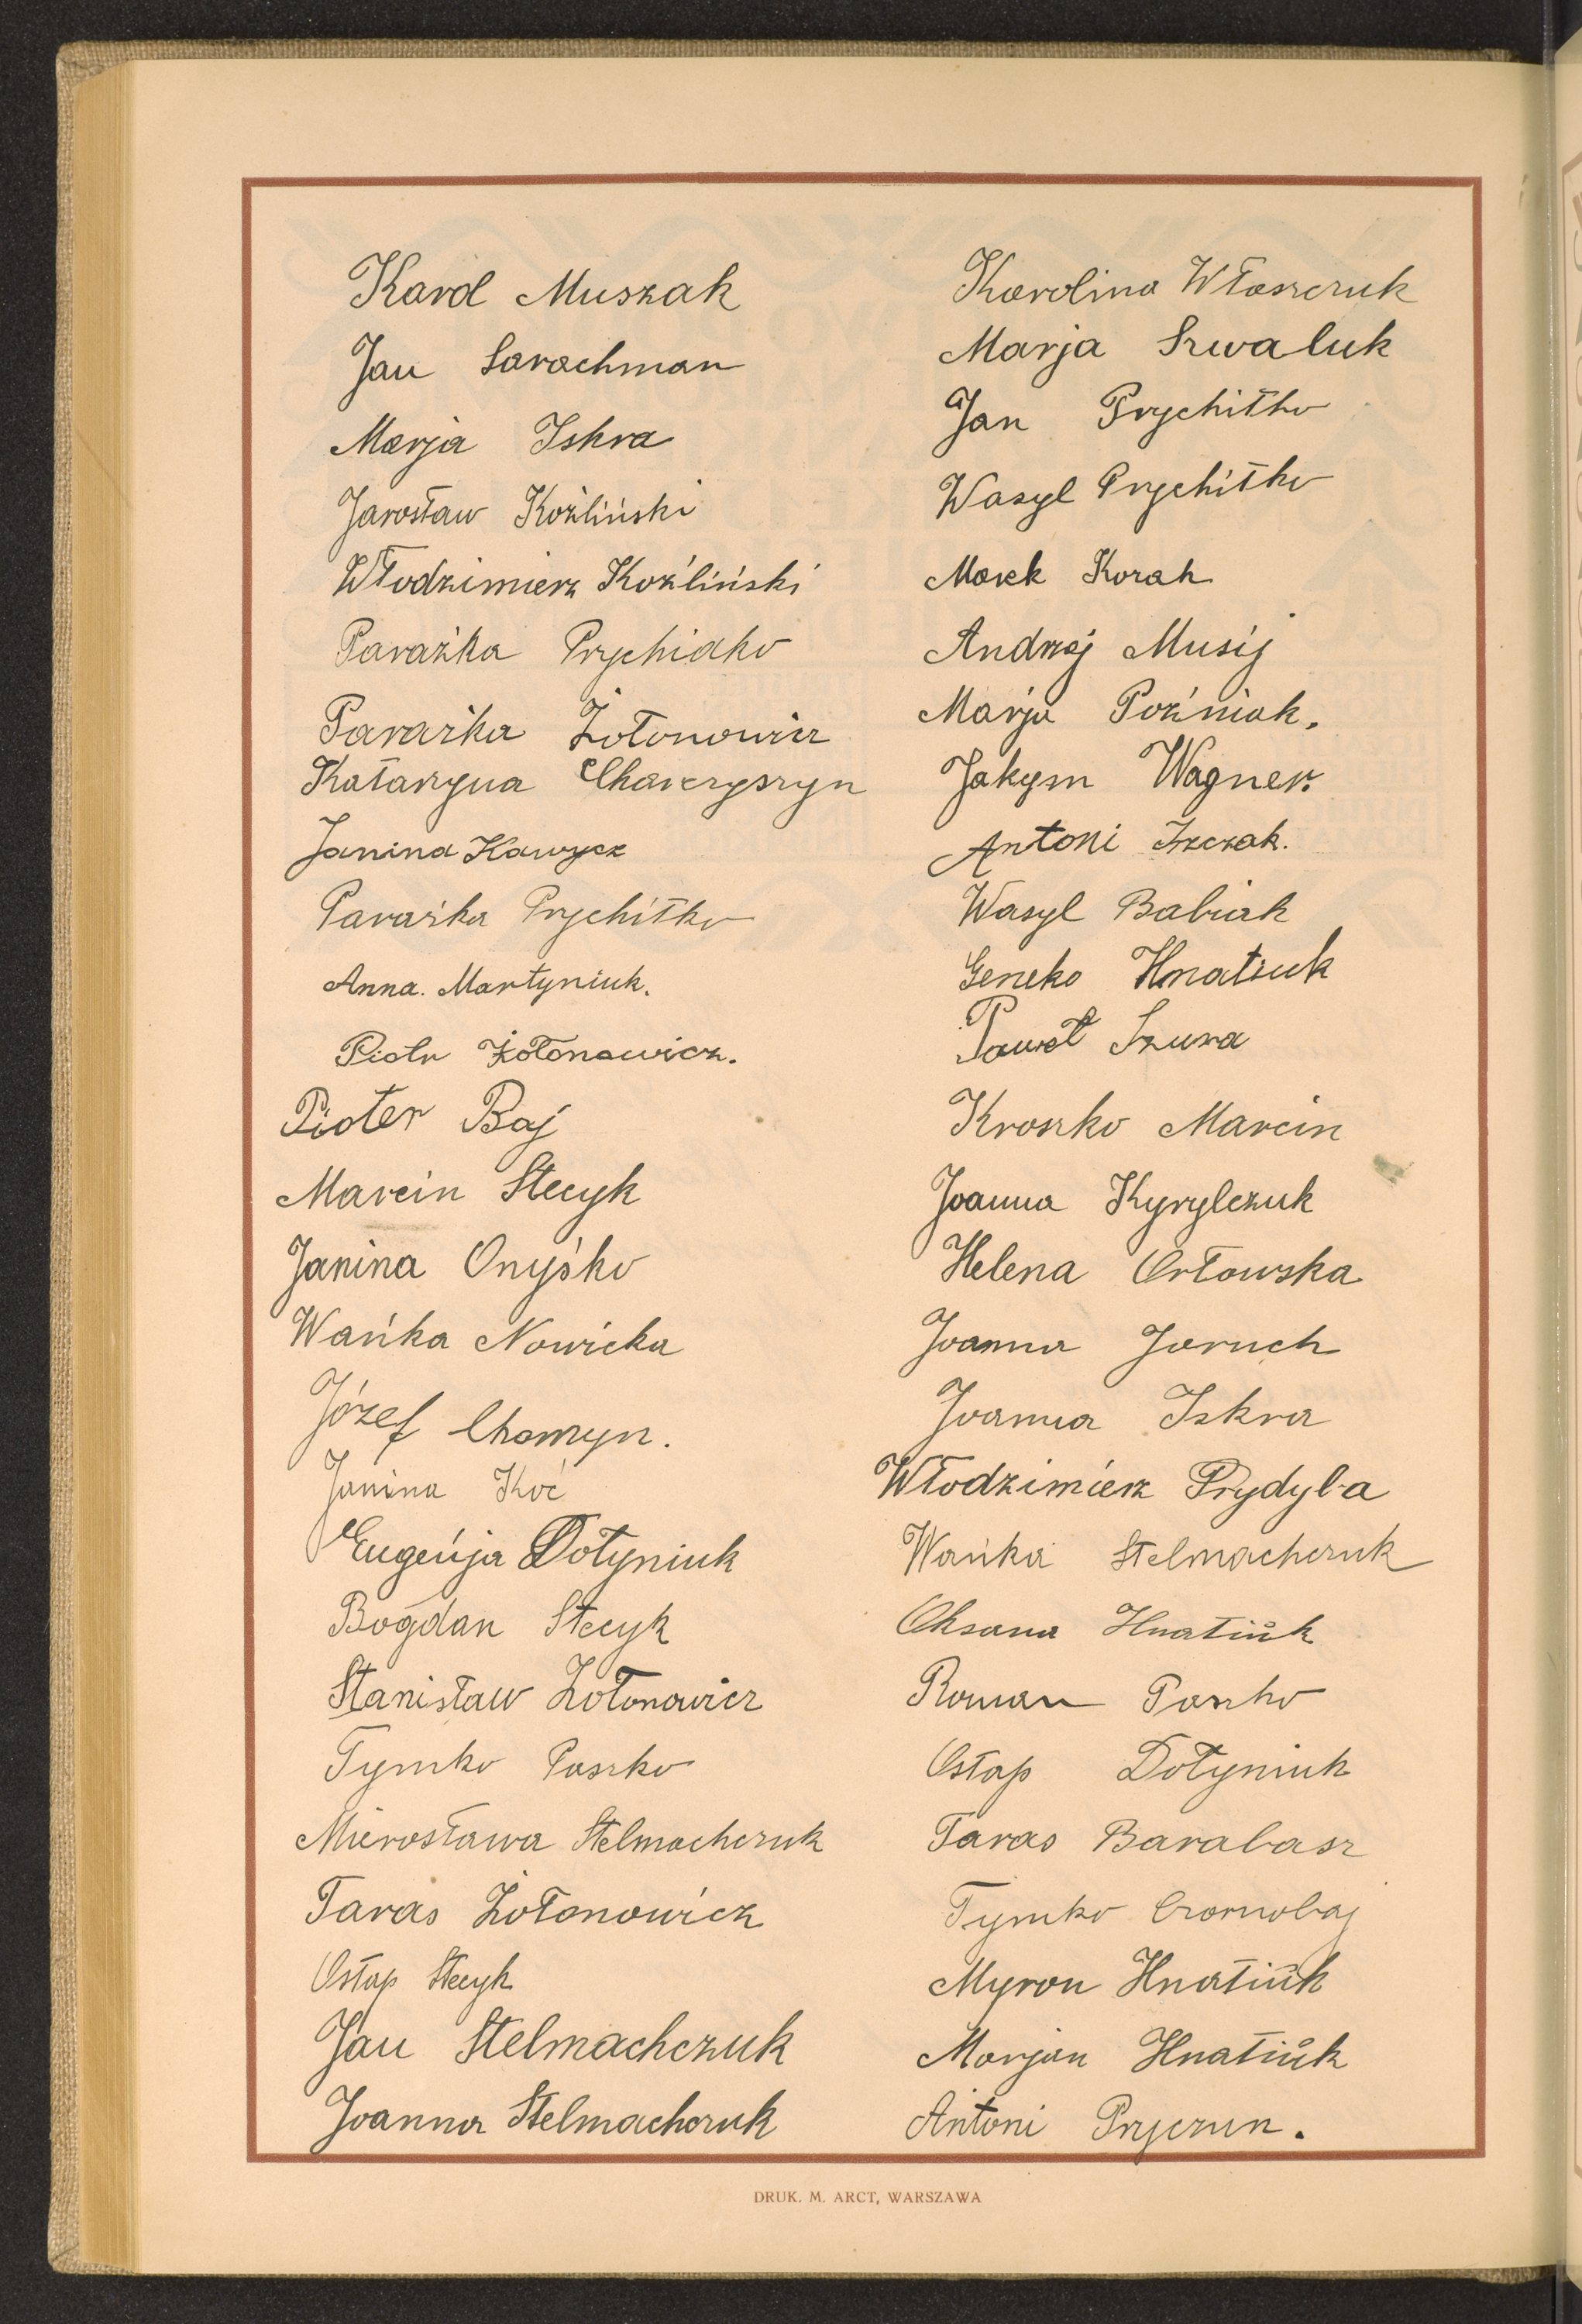 Karol Muszak
Jan Sarachman
Marja Iskra
Jarosław Koźliński
Włodzimierz Koźliński
Paraźka Prychidko
Paraźka Żołonowicz
Katarzyna Charczyszyn
Janina Kawycz
Paraśka Prychitko
Anna. Martyniuk.
Piotr Żołonowicz.
Pioter Baj
Marcin Stecyk
Janina Onyśko
Wańka Nowicka
Józef Chomyn.
Janina Koć
Eugenja Dołyniuk
Bogdan Stecyk
Stanisław Żołonowicz
Tymko Paszko
Mirosława Stelmachczuk
Taras Żołonowicz
Ostap Stecyk
Jan Stelmachczuk
Joanna Stelmachczuk
Karolina Własczuk
Marja Szwaluk
Jan Prychitko
Wasyl Prychitko
Marek Korah
Andrzej Musij
Marja Poźniak.
Jakym Wagner.
Antoni Izczak.
Wasyl Babiak
Geneko Hnatiuk
Paweł Szura
Kroszko Marcin
Joanna Kyrylczuk
Helena Orłowska
Joanna Jaruch
Joanna Iskra
Włodzimierz Prydyba
Wańka Stelmachczuk
Oksana Hnatiuk
Roman Paszko
Ostap Dołyniuk
Taras Barabasz
Tymko Czornobaj
Myron Hnatiuk
Marjan Hnatiuk
Antoni Pryczun.
DRUK. M. ARCT, WARSZAWA